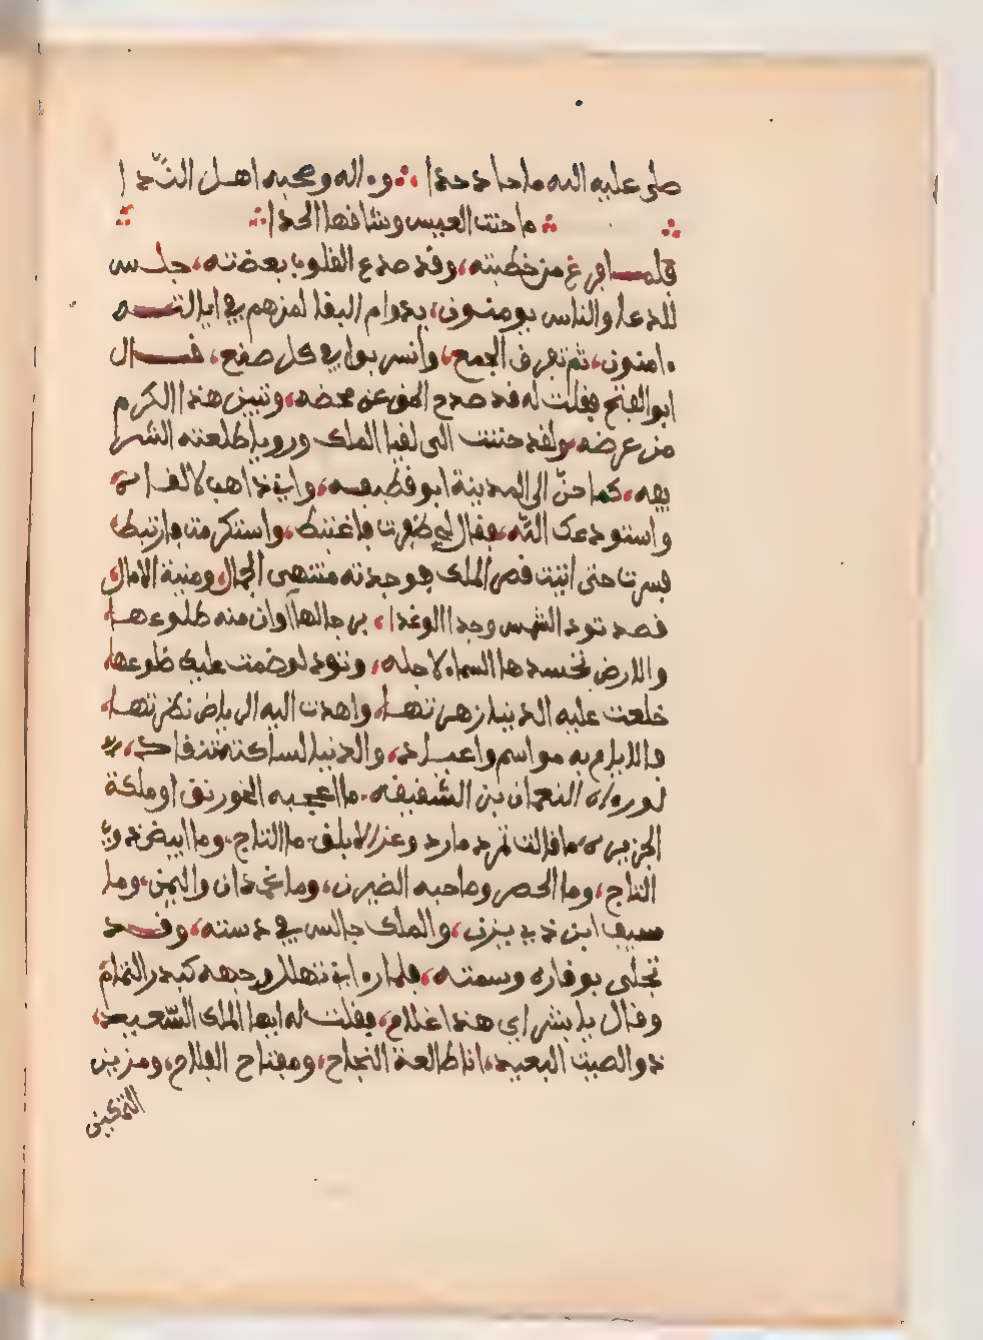 صلى عليه الله ما حاد حدا وءاله وصحبه اهل الندا
ما حنت العيس وشافها الحدا
فلما فرغ من خطبته، وقد صدع القلوب بعضته، جلس
للدعا والناس يومنون، بدوام البقا لمن هم في ايالته
ءامنون، ثم تفرق الجمع، وانسربوا في كل صقع، قال
ابو الفتح فقلت له قد صدح الحق عن محضه، وتبين هذا الكرم
من عرضه، ولقد حننت الى لقيا الملك ورويا طلعته الشرا
يقه، كما حن الى المدينة ابو قطيفه، واني ذاهب لالفا
واستودعك الله، فقال لي ظفرت فاغتبط، واستكرمت فارتبط
فسرت حتى اتيت قصر الملك فوجدته منتهى الجمال ومنية الامال،
قصد تود الشمس وجدا لو غدا، برجالها اوان منه طلوعها
والارض تحسدها السماء لاجله، وتود لو ضمت عليه ضلوعها
خلعت عليه الدنيا زهرتها، واهدت اليه الرياض نضرتها،
فالايام به مواسم واعياد، والدنيا لساكنه تنقاد،
لو رءاه النعمان بن الشقيقه، ما اعجبه الخورنق او ملكة
الجزيرة، ما قالت تمرد مارد وعز الابلق، ما التاج، وما ابيض ذو
التاج، وما الحصر وصاحبه الضيزن، وما غمدان واليمن، وما
سيف ابن ذي يزن، والملك جالس في دسته، وقد
تجلى بوقاره وسمته، فلما رءاني تهلل وجهه كبدر التمام
وقال يا بشراي هذا غلام، فقلت له ايها الملك السعيد،
ذو الصيت البعيد، انا طالعة النجاح، ومفتاح الفلاح، ومزين
التمكين